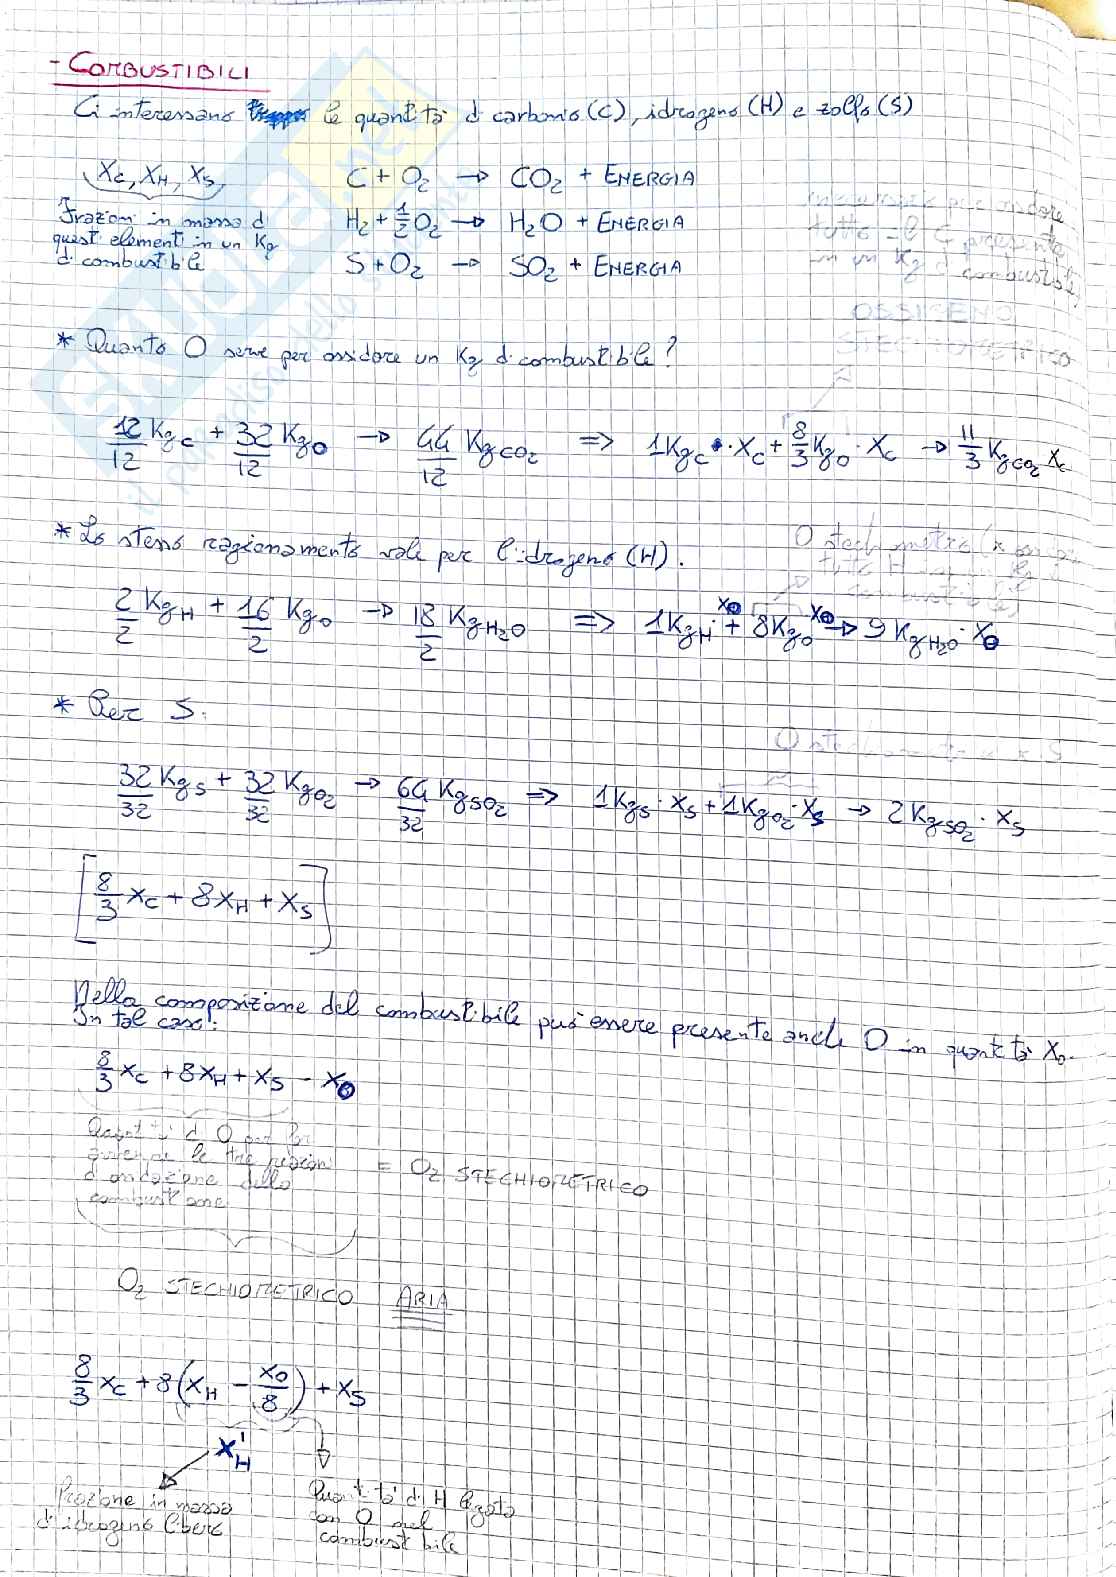 - COMBUSTIBILI
Ci interessano le quantità di carbonio (C), idrogeno (H) e zolfo (S)
Xc, XH, Xs,
Frazioni in massa di
questi elementi in un Kg
di combustibile
C + O2 → CO2 + ENERGIA
H2 + 1/2 O2 → H2O + ENERGIA
S + O2 → SO2 + ENERGIA
per ossidare
tutto il C presente
in un Kg di combustibile
OSSIGENO
STECHIOMETRICO
* Quanto O serve per ossidare un Kg di combustibile?
12/12 Kgc + 32/12 KgO → 44/12 KgCO2 => 1Kgc · Xc + 8/3 KgO · Xc → 11/3 KgCO2 Xc
* Lo stesso ragionamento vale per l'idrogeno (H).
O stechiometrico
2/2 KgH + 16/2 KgO → 18/2 KgH2O => 1KgH · XO + 8KgO XO → 9 KgH2O · XO
* Per S.
32/32 KgS + 32/32 KgO2 → 64/32 KgSO2 => 1KgS · XS + 1KgO2 · XS → 2KgSO2 · XS
[8/3 XC + 8XH + XS]
Nella composizione del combustibile può essere presente anche O in quantità XO.
In tal caso:
8/3 XC + 8XH + XS - XO
Quantità di O per far
avvenire le tre reazioni
di ossidazione della
combustione
= O2 STECHIOMETRICO
O2 STECHIOMETRICO ARIA
8/3 XC + 8(XH - XO/8) + XS
X'H
Frazione in massa
di idrogeno libero
Quantità di H legata
con O nel
combustibile